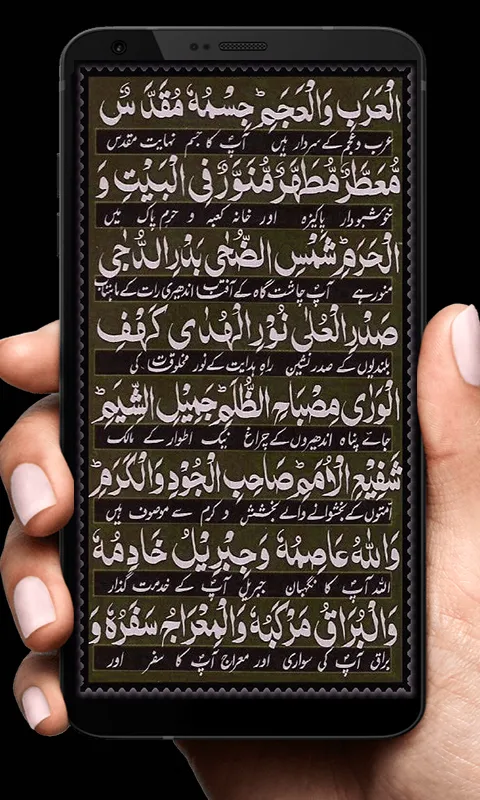 الْعَرَبِ وَالْعَجَمِ ؕ جِسْمُهٗ مُقَدَّسٌ
عرب و عجم کے سردار ہیں آپؐ کا جسم نہایت مقدس
مُّعَطَّرٌ مُّطَهَّرٌ مُّنَوَّرٌ فِی الْبَیْتِ وَ
خوشبودار پاکیزہ اور خانہ کعبہ و حرم پاک میں
الْحَرَمِ ؕ شَمْسِ الضُّحٰی بَدْرِ الدُّجٰی
منور ہے آپؐ چاشت گاہ کے آفتاب اندھیری رات کے ماہتاب
صَدْرِ الْعُلٰی نُوْرِ الْهُدٰی کَهْفِ
بلندیوں کے صدر نشین راہ ہدایت کے نور مخلوقات کی
الْوَرٰی مِصْبَاحِ الظُّلَمِ ؕ جَمِیْلِ الشِّیَمِ ؕ
جائے پناہ اندھیروں کے چراغ نیک اطوار کے مالک
شَفِیْعِ الْاُمَمِ ؕ صَاحِبِ الْجُوْدِ وَالْکَرَمِ ؕ
امتوں کے بخشوانے والے بخشش و کرم سے موصوف ہیں
وَاللّٰهُ عَاصِمُهٗ وَجِبْرِیْلُ خَادِمُهٗ
اللہ آپؐ کا نگہبان جبریل آپؐ کے خدمت گذار
وَالْبُرَاقُ مَرْکَبُهٗ وَالْمِعْرَاجُ سَفَرُهٗ وَ
براق آپؐ کی سواری اور معراج آپؐ کا سفر اور